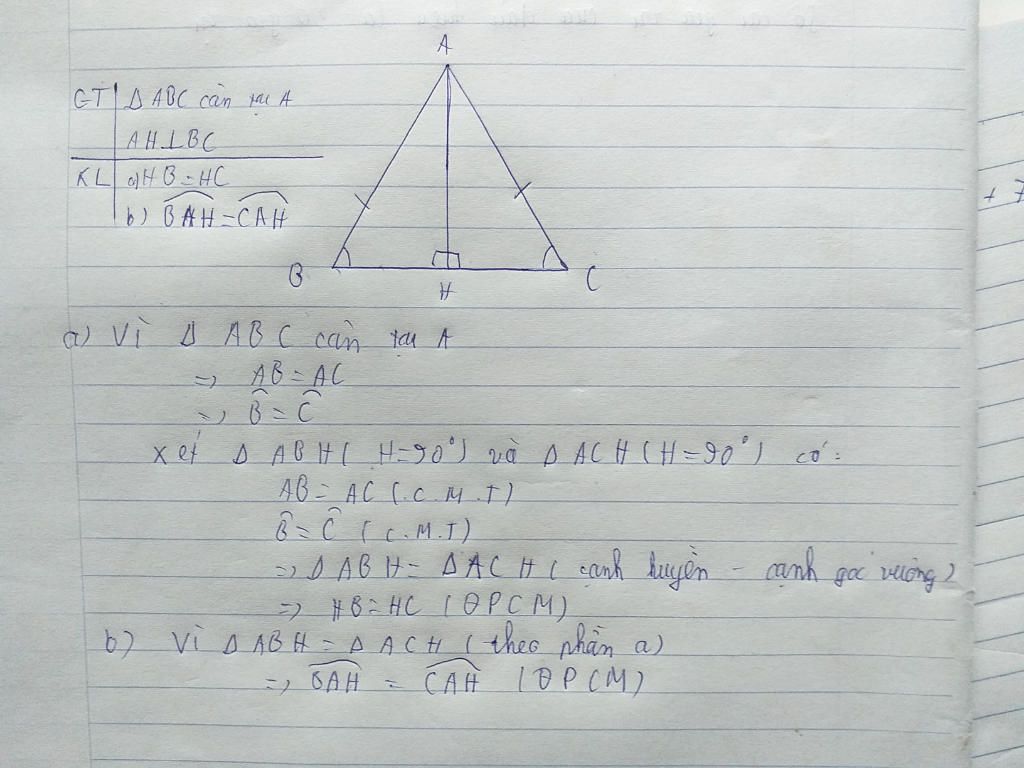 GT ΔABC cân tại A
AH⊥BC
KL a) HB=HC
b) BAH=CAH
A
B
H
C
a) Vì Δ ABC cân tại A
=> AB=AC
=> B̂=Ĉ
Xét Δ ABH( H=90°) và Δ ACH(H=90°) có:
AB=AC (C.M.T)
B̂=Ĉ (C.M.T)
=> Δ ABH= ΔACH( cạnh huyền - cạnh góc vuông)
=> HB=HC (ĐPCM)
b) Vì ΔABH=Δ ACH (theo phần a)
=> BAH = CAH (ĐPCM)
+ 7